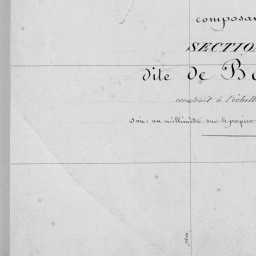 composa
SECTION
dite de B
construit à l'échell
Soit: un millimètre sur le papier